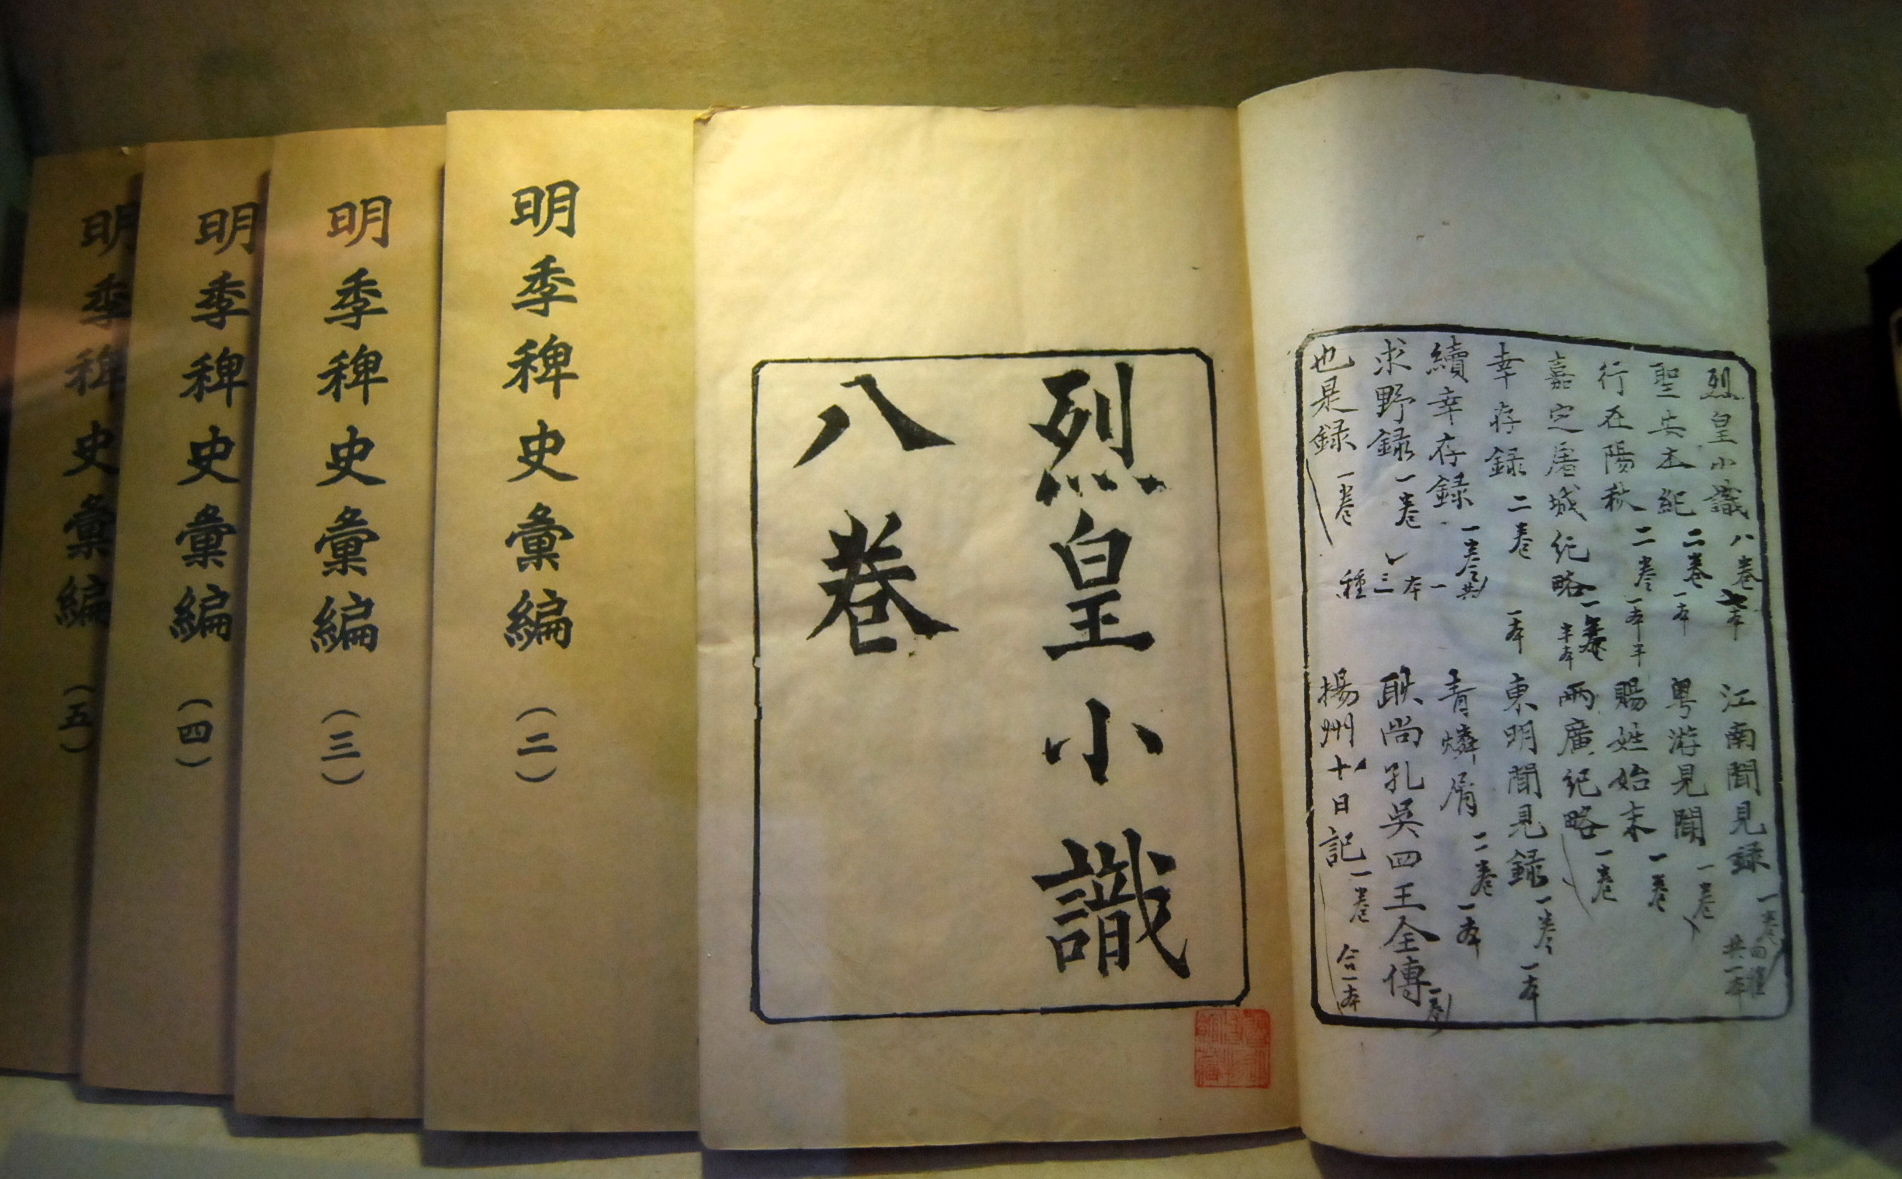 烈皇小識 八卷 七本
聖安本紀 二卷 一本
行在陽秋 二卷 一本半
嘉定屠城紀略 一卷 半本
幸存録 二卷 一本
續幸存録 一卷 共一本
求野録 一卷 三種
也是録 一卷
江南聞見録 一卷 共一本
粤游見聞 一卷
賜姓始末 一卷
兩廣紀略 一卷
東明聞見録 一卷 一本
青燐屑 二卷 一本
耿尚孔吳四王全傳 一卷
揚州十日記 一卷 合一本
烈皇小識
八卷
明季稗史彙編（二）
明季稗史彙編（三）
明季稗史彙編（四）
明季稗史彙編（五）